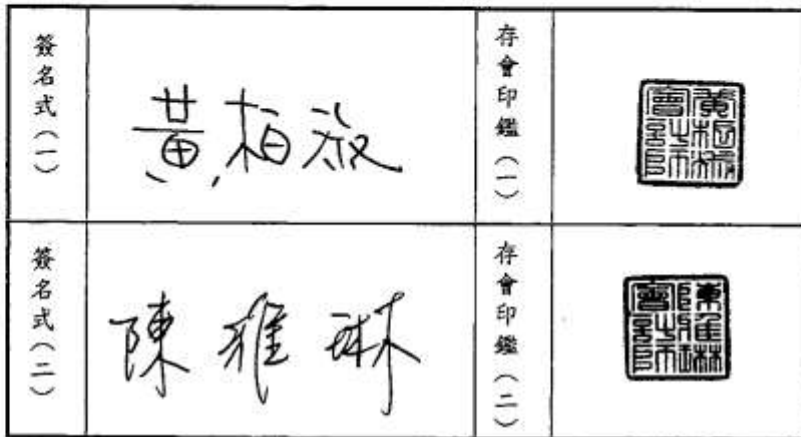 簽名式(一)
黃柏淑
存會印鑑(一)
簽名式(二)
陳雅琳
存會印鑑(二)
陳雅琳會計師